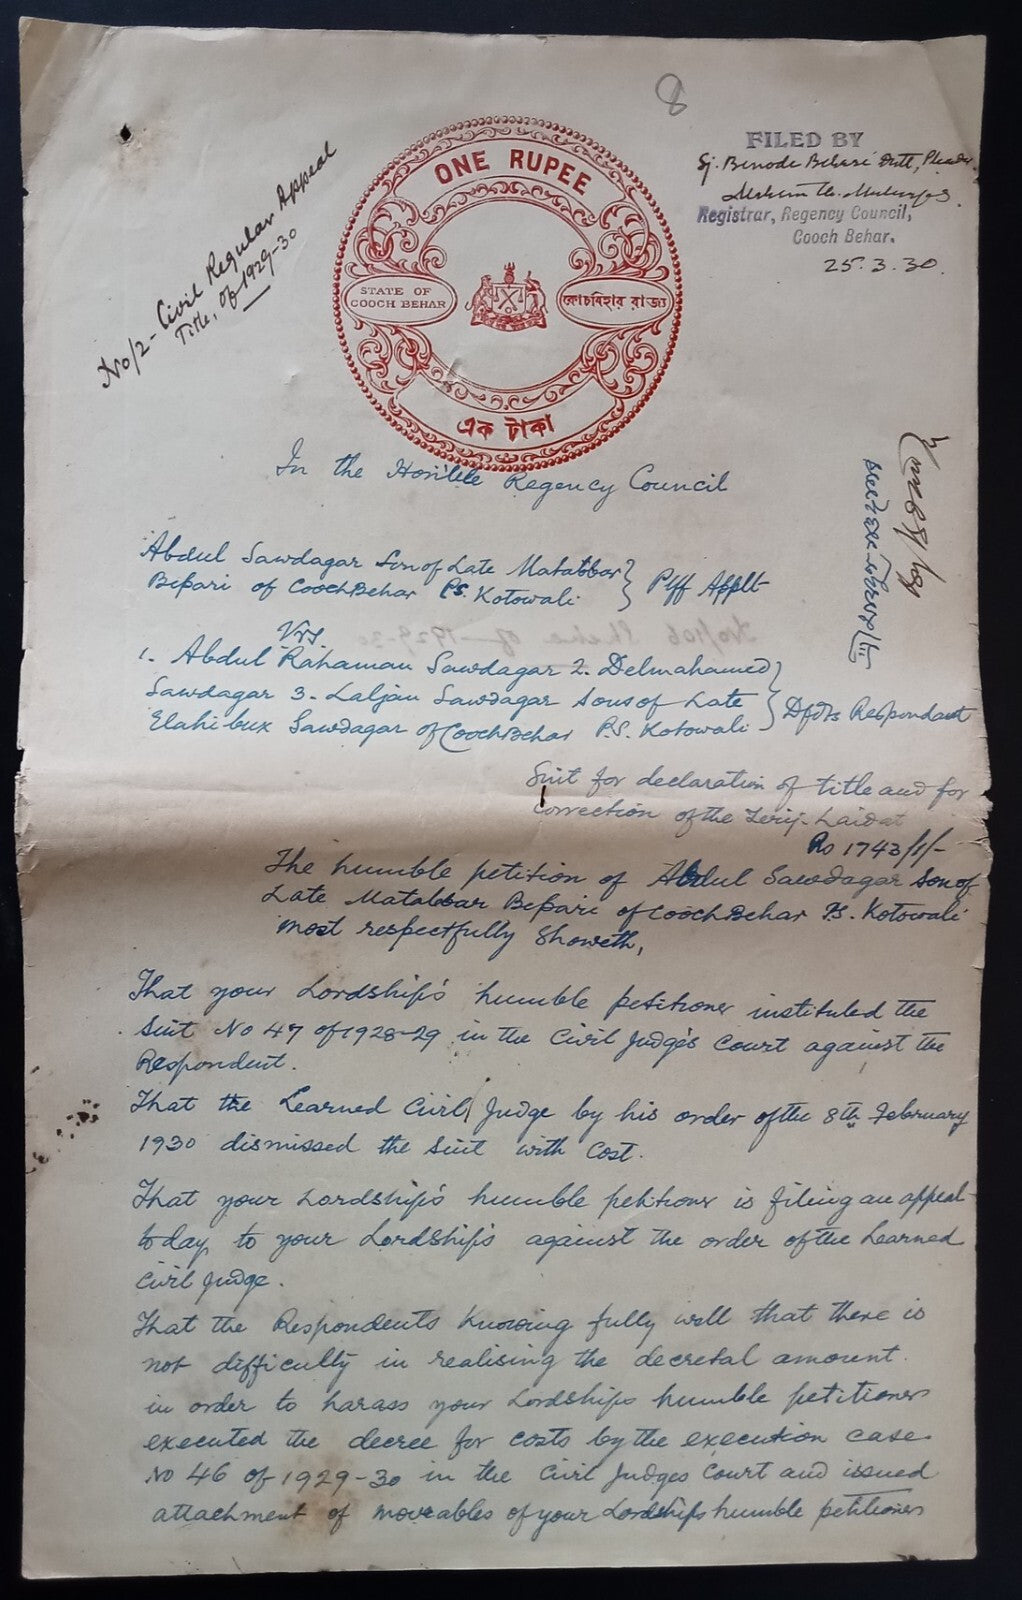 8
FILED BY
Sj. Benode Behari Dutt, Pleader
Registrar, Regency Council,
Cooch Behar.
25.3.30.
No/2- Civil Regular Appeal
Title, of 1929-30
ONE RUPEE
STATE OF
COOCH BEHAR
কোচবিহার রাজ্য
এক টাকা
In the Hon'ble Regency Council
Abdul Sawdagar Son of Late Matabbar
Bepari of CoochBehar P.S. Kotowali
Plff Applt
Vrs.
1. Abdul Rahaman Sawdagar 2. Delmahamed
Sawdagar 3. Laljan Sawdagar Sons of Late
Elahibux Sawdagar of CoochBehar P.S. Kotowali
Dfdts Respondant
Suit for declaration of title and for
correction of the
Rs 1743/1/-
The humble petition of Abdul Sawdagar Son of
Late Matabbar Bepari of CoochBehar P.S. Kotowali
most respectfully Showeth,
That your Lordship's humble petitioner instituted the
Suit No 47 of 1928-29 in the Civil Judge's Court against the
Respondent.
That the Learned Civil Judge by his order of the 8th February
1930 dismissed the suit with Cost.
That your Lordship's humble petitioner is filing an appeal
today to your Lordships against the order of the Learned
Civil Judge.
That the Respondents Knowing fully well that there is
not difficulty in realising the decretal amount.
in order to harass your Lordships humble petitioner
executed the decree for costs by the execution case
No 46 of 1929-30 in the Civil Judges Court and issued
attachment of moveables of your Lordships humble petitioners